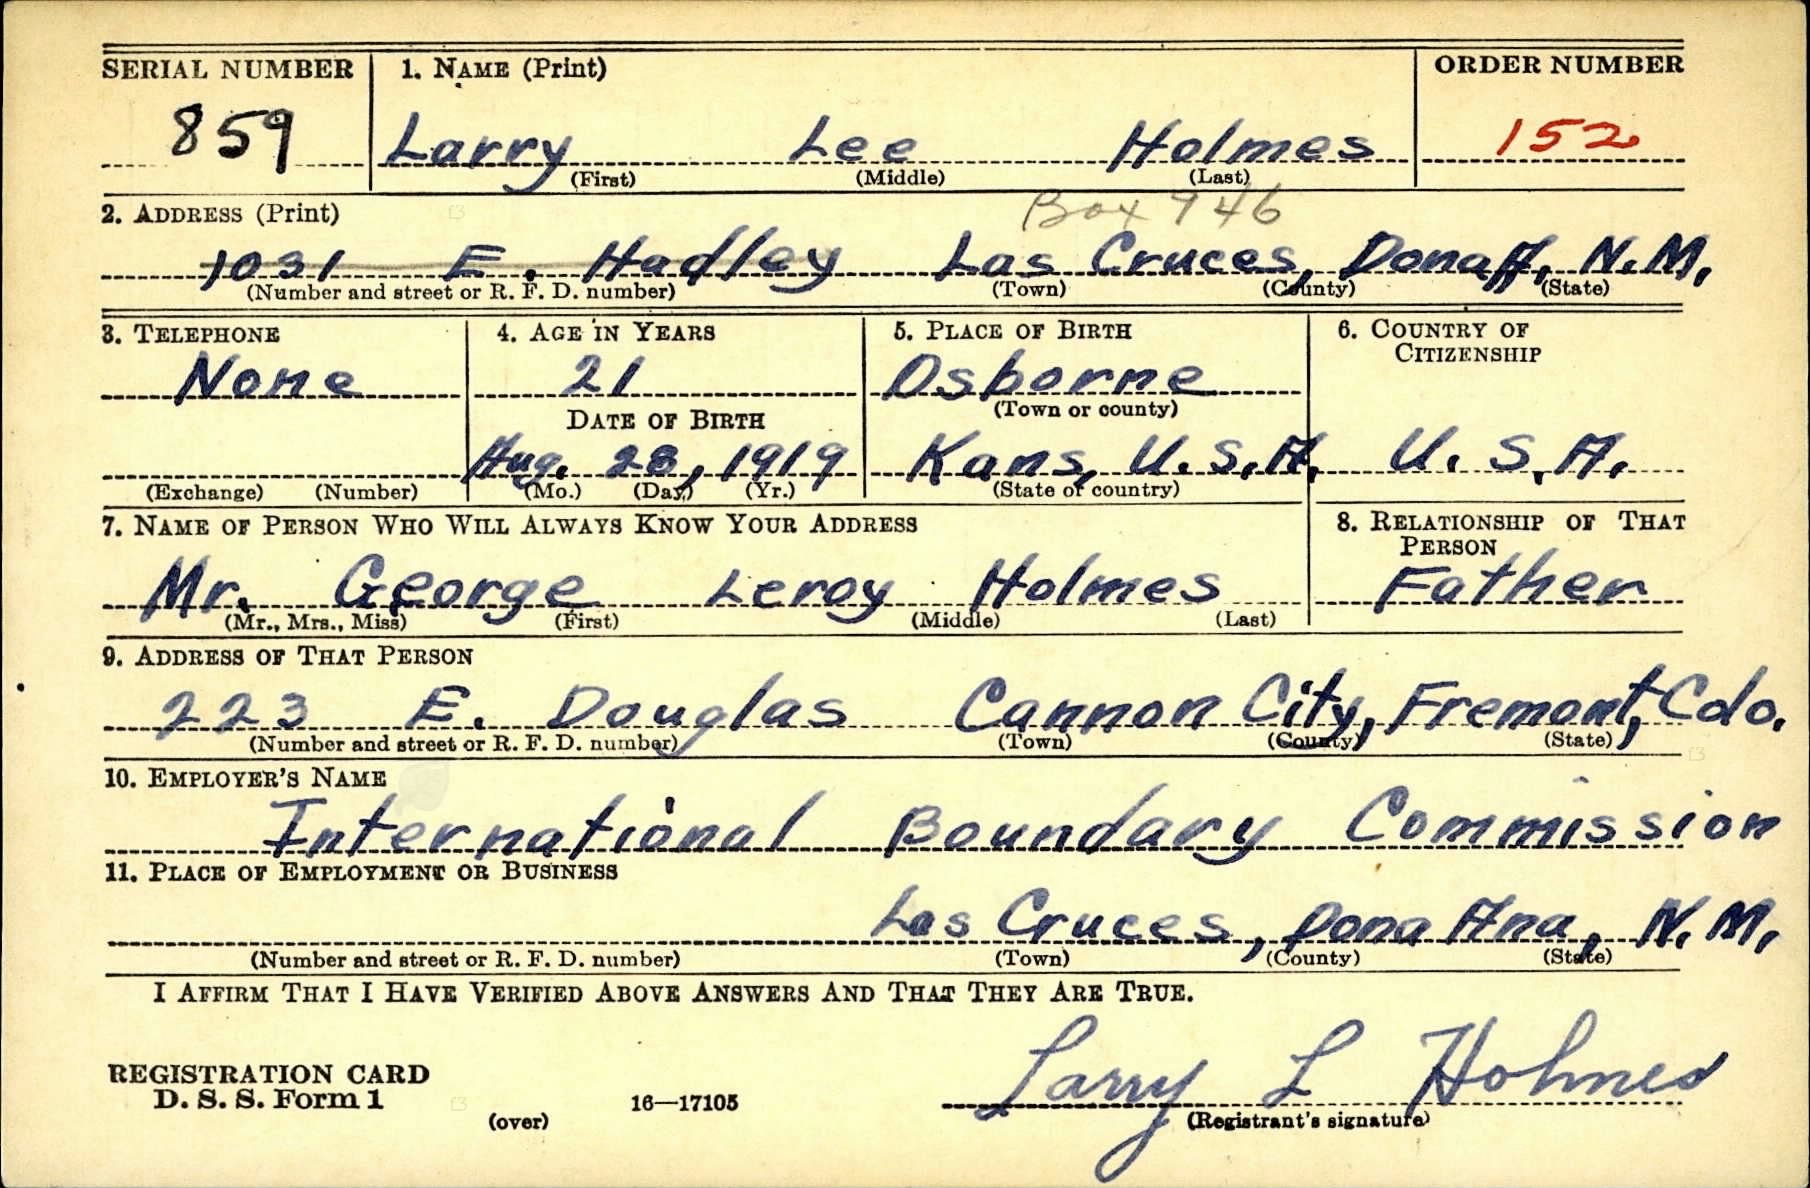 SERIAL NUMBER 1. NAME (Print) ORDER NUMBER
859 Larry Lee Holmes 152
(First) (Middle) (Last)
2. ADDRESS (Print) Box 946
1031 E. Hadley Las Cruces, Dona A, N.M.
(Number and street or R. F. D. number) (Town) (County) (State)
3. TELEPHONE 4. AGE IN YEARS 5. PLACE OF BIRTH 6. COUNTRY OF
CITIZENSHIP
None 21 Osborne
DATE OF BIRTH (Town or county)
Aug. 28, 1919 Kans, U.S.A. U.S.A.
(Exchange) (Number) (Mo.) (Day) (Yr.) (State or country)
7. NAME OF PERSON WHO WILL ALWAYS KNOW YOUR ADDRESS 8. RELATIONSHIP OF THAT
PERSON
Mr. George Leroy Holmes Father
(Mr., Mrs., Miss) (First) (Middle) (Last)
9. ADDRESS OF THAT PERSON
223 E. Douglas Cannon City, Fremont, Colo.
(Number and street or R. F. D. number) (Town) (County) (State)
10. EMPLOYER'S NAME
International Boundary Commission
11. PLACE OF EMPLOYMENT OR BUSINESS
Las Cruces, Dona Ana, N.M.
(Number and street or R. F. D. number) (Town) (County) (State)
I AFFIRM THAT I HAVE VERIFIED ABOVE ANSWERS AND THAT THEY ARE TRUE.
Larry L Holmes
REGISTRATION CARD
D. S. S. Form 1 16—17105
(over) (Registrant's signature)